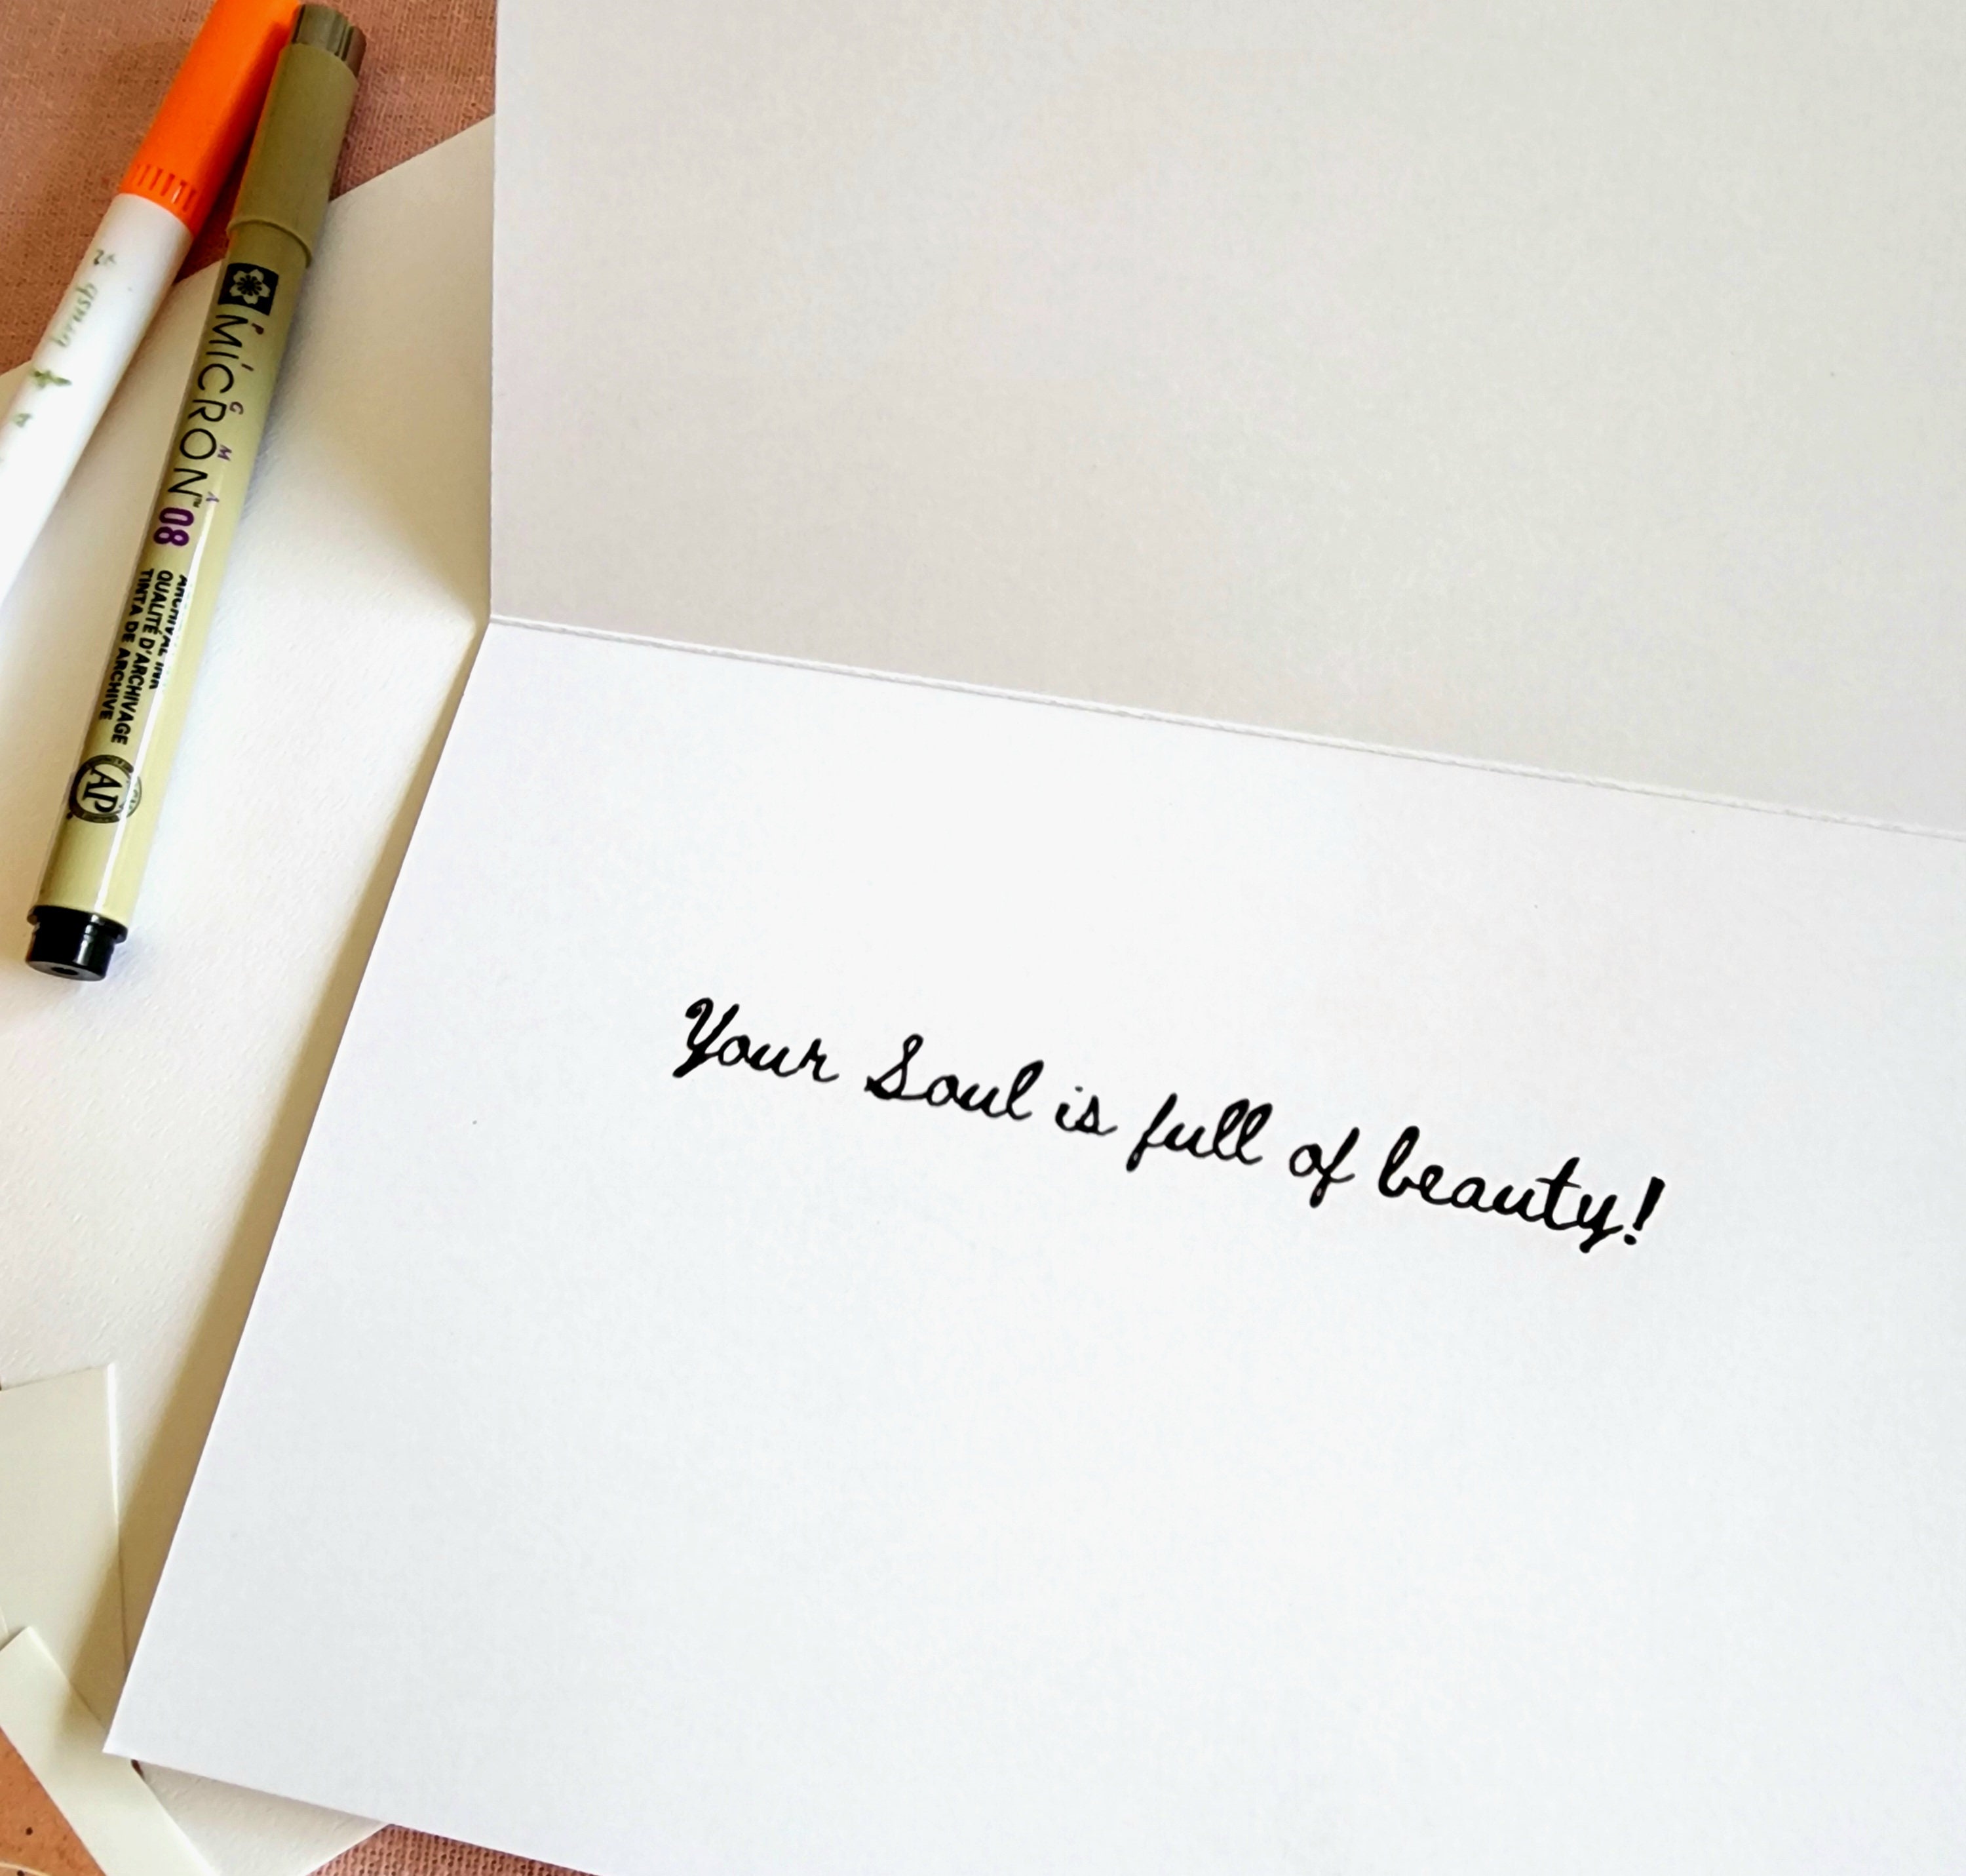 Your Soul is full of beauty!
brush
PIGMA
MICRON™ 08
ARCHIVAL INK
QUALITÉ D'ARCHIVAGE
TINTA DE ARCHIVE
AP